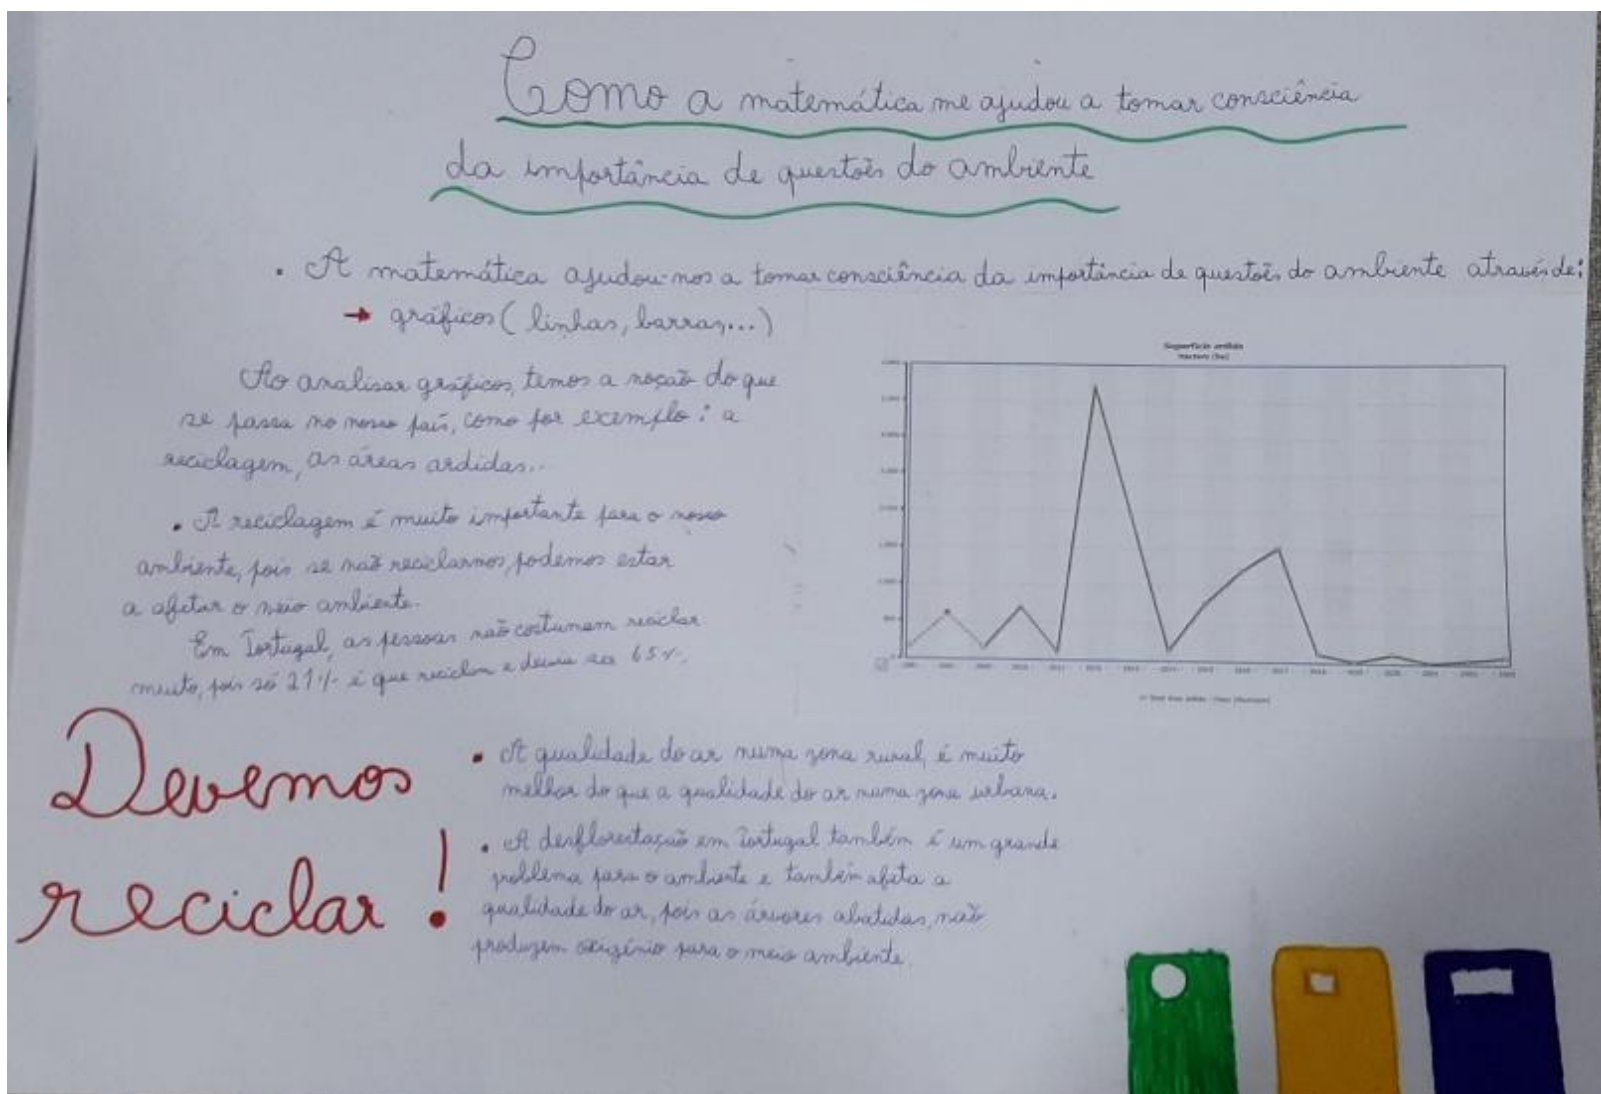 Como a matemática me ajudou a tomar consciência
da importância de questões do ambiente
• A matemática ajudou-nos a tomar consciência da importância de questões do ambiente através de:
→ gráficos (linhas, barras,...)
Ao analisar gráficos, temos a noção do que
se passa no nosso país, como por exemplo: a
reciclagem, as áreas ardidas...
• A reciclagem é muito importante para o nosso
ambiente, pois se não reciclarmos, podemos estar
a afetar o meio ambiente.
Em Portugal, as pessoas não costumam reciclar
muito, pois só 21% é que reciclam e devia ser 65%.
Superfície ardida
Hectare (ha)
Devemos
reciclar!
• A qualidade do ar numa zona rural, é muito
melhor do que a qualidade do ar numa zona urbana.
• A desflorestação em Portugal também é um grande
problema para o ambiente e também afeta a
qualidade do ar, pois as árvores abatidas, não
produzem oxigénio para o meio ambiente.